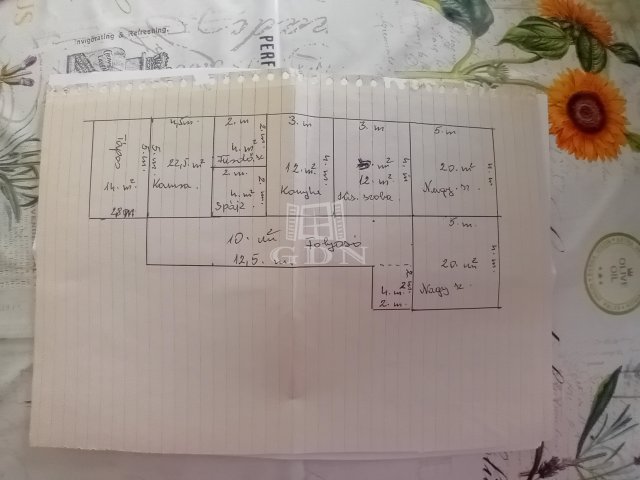 Invigorating & Refreshing
PERF
OLIVE
OIL
4,5m.
2. m
3. m
3. m
5. m
5. m.
5. m.
2. m.
4. m²
Fürdősz
22,5. m²
Kamra.
14. m²
2. m
2. m.
4. m²
Spájz
12. m²
Konyha
4. m.
m²
12. m²
Kis. szoba
4. m.
20. m²
Nagy. sz.
10. m²
Folyosó
12,5. m.
GDN
5. m.
4. m.
20. m²
Nagy sz.
4. m.
2. m.